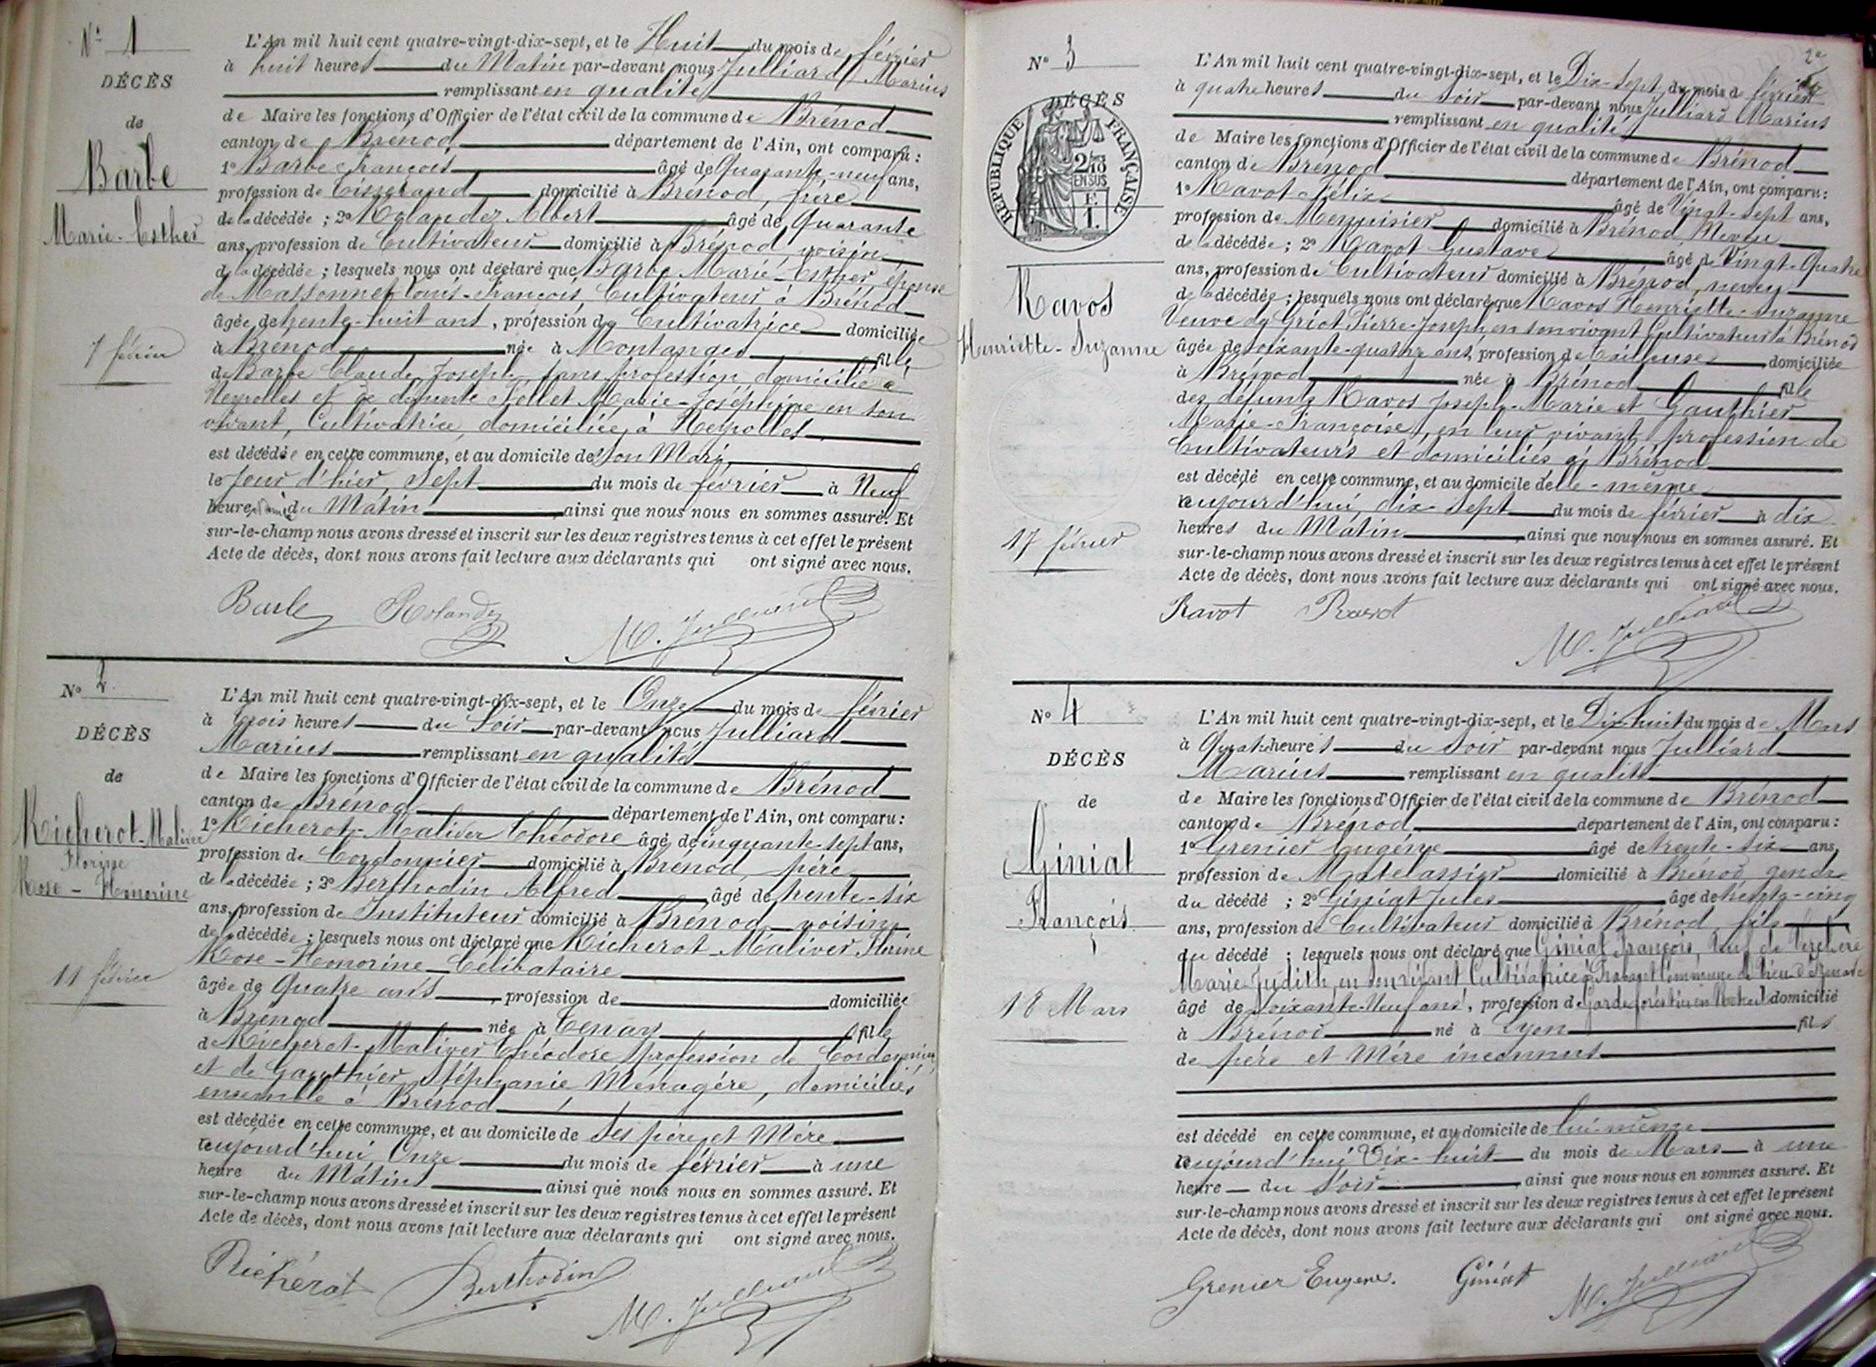 N° 1
DÉCÈS
de
Barbe
Marie-Esther
7 février
L'An mil huit cent quatre-vingt-dix-sept, et le Huit du mois de février
à huit heures du Matin par-devant nous Julliard Marius
remplissant en qualité
de Maire les fonctions d'Officier de l'état civil de la commune de Brénod
canton de Brénod département de l'Ain, ont comparu :
1° Barbe François âgé de Quarante-neuf ans,
profession de Tisserand domicilié à Brénod, père
de la décédée ; 2° Rolandez Albert âgé de Quarante
ans, profession de Cultivateur domicilié à Brénod voisin
de la décédée ; lesquels nous ont déclaré que Barbe Marie-Esther, épouse
de Massonnet Louis-François, Cultivateur à Brénod
âgée de trente-huit ans, profession de Cultivatrice domiciliée
à Brénod née à Montanges fille
de Barbe Claude Joseph, sans profession domicilié à
Neyrolles et de défunte Nollet Marie-Joséphine en son
vivant, Cultivatrice, domiciliée à Neyrolles
est décédée en cette commune, et au domicile de son Mari
le jour d'hier, Sept du mois de février à Neuf
heures du Matin ainsi que nous nous en sommes assuré. Et
sur-le-champ nous avons dressé et inscrit sur les deux registres tenus à cet effet le présent
Acte de décès, dont nous avons fait lecture aux déclarants qui ont signé avec nous.
Barbe Rolandez M. Julliard
N° 2
DÉCÈS
de
Richerot-Maliver
Florine
Rose-Honorine
11 février
L'An mil huit cent quatre-vingt-dix-sept, et le Onze du mois de février
à trois heures du Soir par-devant nous Julliard
Marius remplissant en qualité
de Maire les fonctions d'Officier de l'état civil de la commune de Brénod
canton de Brénod département de l'Ain, ont comparu :
1° Richerot-Maliver Théodore âgé de cinquante-sept ans,
profession de Cordonnier domicilié à Brénod, père
de la décédée ; 2° Berthodin Alfred âgé de trente-six
ans, profession de Instituteur domicilié à Brénod voisin
de la décédée ; lesquels nous ont déclaré que Richerot-Maliver Florine
Rose-Honorine Célibataire
âgée de Quatre ans, profession de domiciliée
à Brénod née à Cenay fille
de Richerot-Maliver Théodore profession de Cordonnier
et de Gauthier Stéphanie Ménagère, domiciliés
ensemble à Brénod
est décédée en cette commune, et au domicile de ses père et Mère
aujourd'hui Onze du mois de février à une
heure du Matin ainsi que nous nous en sommes assuré. Et
sur-le-champ nous avons dressé et inscrit sur les deux registres tenus à cet effet le présent
Acte de décès, dont nous avons fait lecture aux déclarants qui ont signé avec nous.
Richérot Berthodin M. Julliard
2e
N° 3
DÉCÈS
RÉPUBLIQUE FRANÇAISE
2/10 EN SUS
F 1.
Ravot
Henriette-Suzanne
17 février
L'An mil huit cent quatre-vingt-dix-sept, et le Dix-Sept du mois de février
à quatre heures du Soir par-devant nous Julliard Marius
remplissant en qualité
de Maire les fonctions d'Officier de l'état civil de la commune de Brénod
canton de Brénod département de l'Ain, ont comparu :
1° Ravot Félix âgé de Vingt-sept ans,
profession de Menuisier domicilié à Brénod, Neveu
de la décédée ; 2° Ravot Gustave âgé de Vingt-Quatre
ans, profession de Cultivateur domicilié à Brénod, neveu
de la décédée ; lesquels nous ont déclaré que Ravot Henriette-Suzanne
Veuve de Griot Pierre-Joseph en son vivant Cultivateur à Brénod
âgée de soixante-quatorze ans, profession de tailleuse domiciliée
à Brénod née à Brénod fille
des défunts Ravot Joseph-Marie et Gauthier
Marie-Françoise, en leur vivant profession de
Cultivateurs et domiciliés à Brénod
est décédé en cette commune, et au domicile d'elle-même
aujourd'hui, dix-sept du mois de février à dix
heures du Matin ainsi que nous nous en sommes assuré. Et
sur-le-champ nous avons dressé et inscrit sur les deux registres tenus à cet effet le présent
Acte de décès, dont nous avons fait lecture aux déclarants qui ont signé avec nous.
Ravot Ravot M. Julliard
N° 4
DÉCÈS
de
Giniat
François
18 Mars
L'An mil huit cent quatre-vingt-dix-sept, et le Dix-huit du mois de Mars
à Quatre heures du Soir par-devant nous Julliard
Marius remplissant en qualité
de Maire les fonctions d'Officier de l'état civil de la commune de Brénod
canton de Brénod département de l'Ain, ont comparu :
1° Grenier Eugène âgé de trente-six ans,
profession de Matelassier domicilié à Brénod, gendre
du décédé ; 2° Giniat Jules âgé de trente-cinq
ans, profession de Cultivateur domicilié à Brénod, fils
du décédé ; lesquels nous ont déclaré que Giniat François, Veuf de
Marie Judith, en son vivant Cultivatrice à commune de
âgé de soixante-Neuf ans, profession de Garde forestier en domicilié
à Brénod né à Lyon fils
de père et Mère inconnus
est décédé en cette commune, et au domicile de lui-même
aujourd'hui Dix-huit du mois de Mars à une
heure du Soir ainsi que nous nous en sommes assuré. Et
sur-le-champ nous avons dressé et inscrit sur les deux registres tenus à cet effet le présent
Acte de décès, dont nous avons fait lecture aux déclarants qui ont signé avec nous.
Grenier Eugène. Giniat M. Julliard